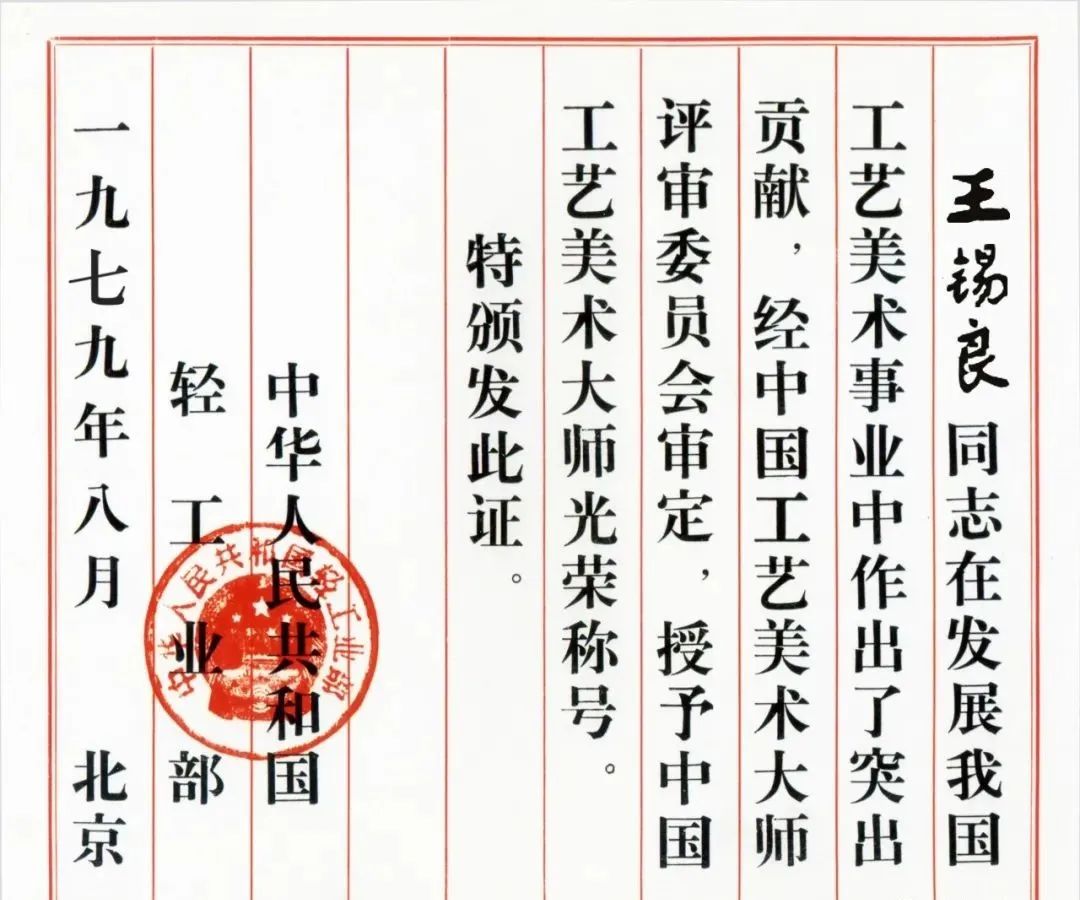 王锡良同志在发展我国
工艺美术事业中作出了突出
贡献，经中国工艺美术大师
评审委员会审定，授予中国
工艺美术大师光荣称号。
特颁发此证。
中华人民共和国
轻工业部
一九七九年八月 北京
中华人民共和国轻工业部